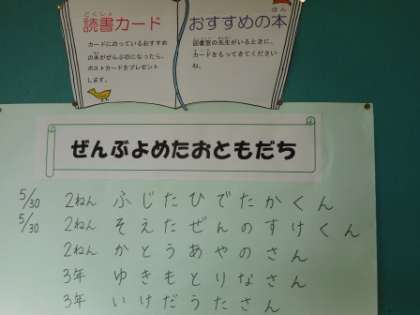 どくしょ
読書カード
カードにのっているおすすめ
の本がぜんぶ〇になったら、
ポストカードをプレゼント
します。
ほん
おすすめの本
読書室の先生がいるときに、
カードをもってきてください
ね。
ぜんぶよめたおともだち
5/30 2ねん ふじたひでたかくん
5/30 2ねん そえだぜんのすけくん
2ねん かとうあやのさん
3年 ゆきもとりなさん
3年 いけだうたさん